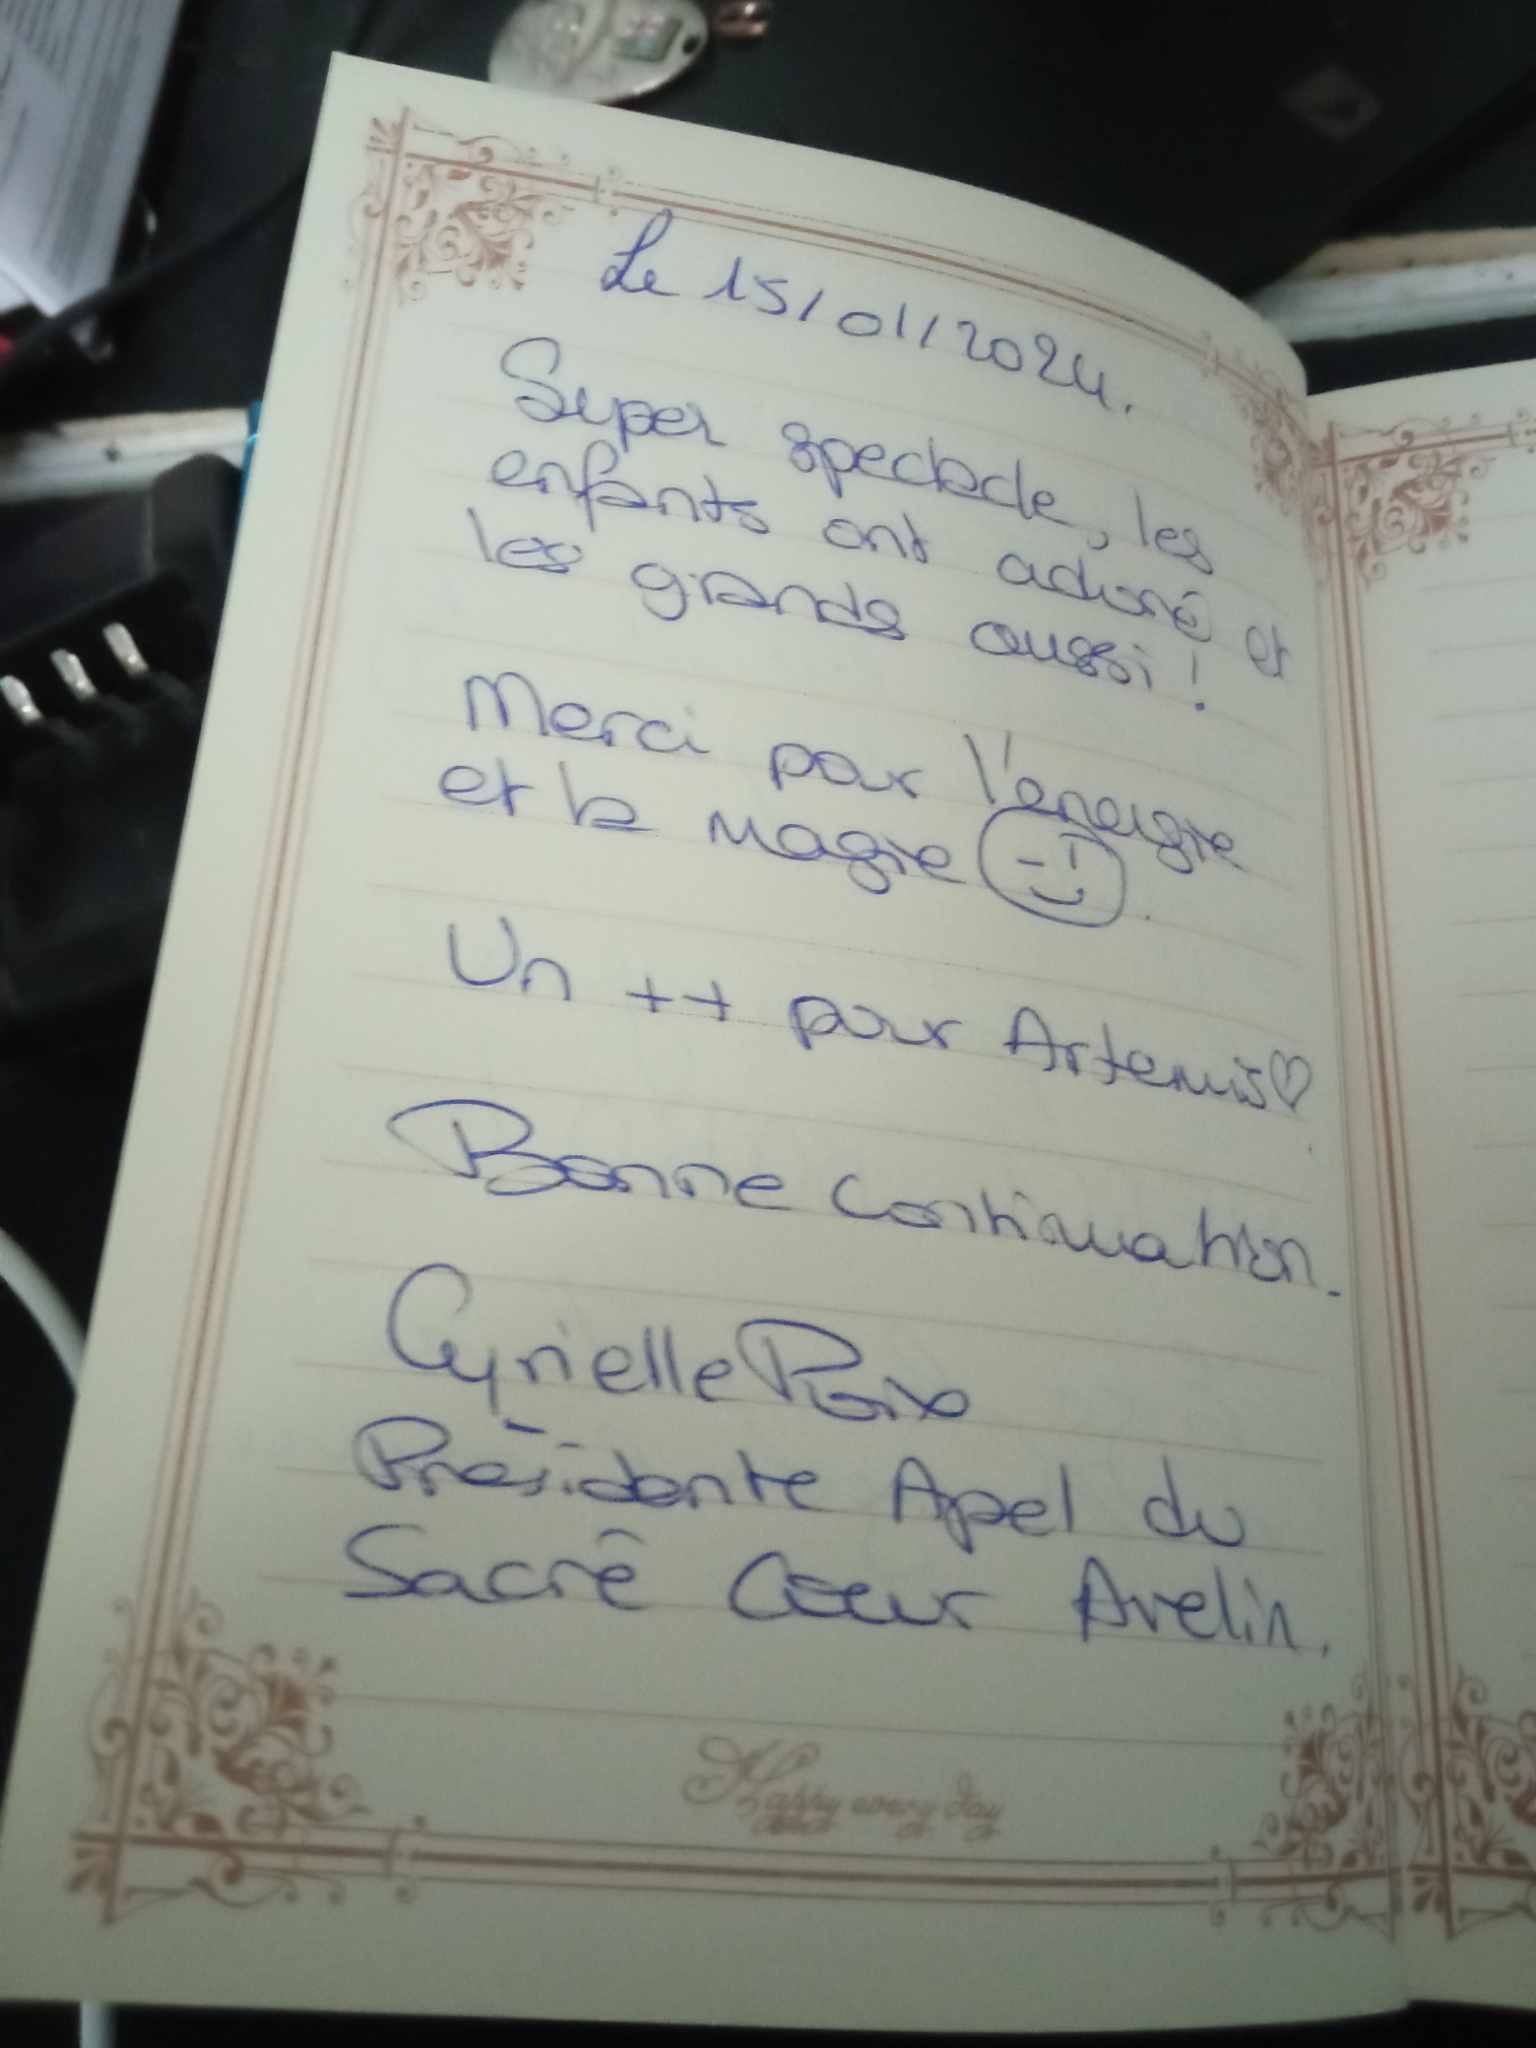 Le 15/01/2024.
Super spectacle, les
enfants ont adoré et
les grands aussi !
Merci pour l'énergie
et la magie
Un ++ pour Artemis♡
Bonne continuation.
Cyrielle Roix
Présidente Apel du
Sacré Coeur Avelin.
Happy every day